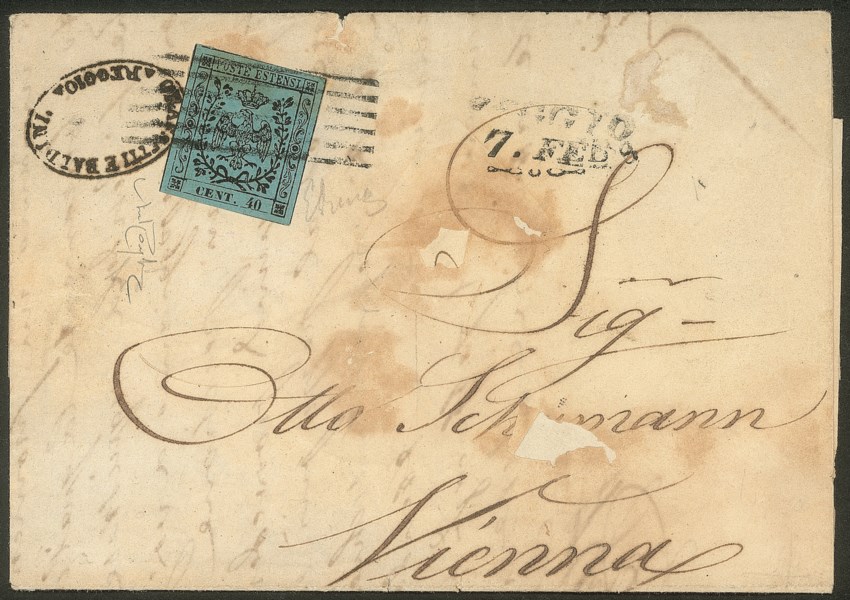 POSTE ESTENSI
CENT. 40
REGGIO
REGGIO
7. FEB
Sig
Otto Sch mann
Vienna